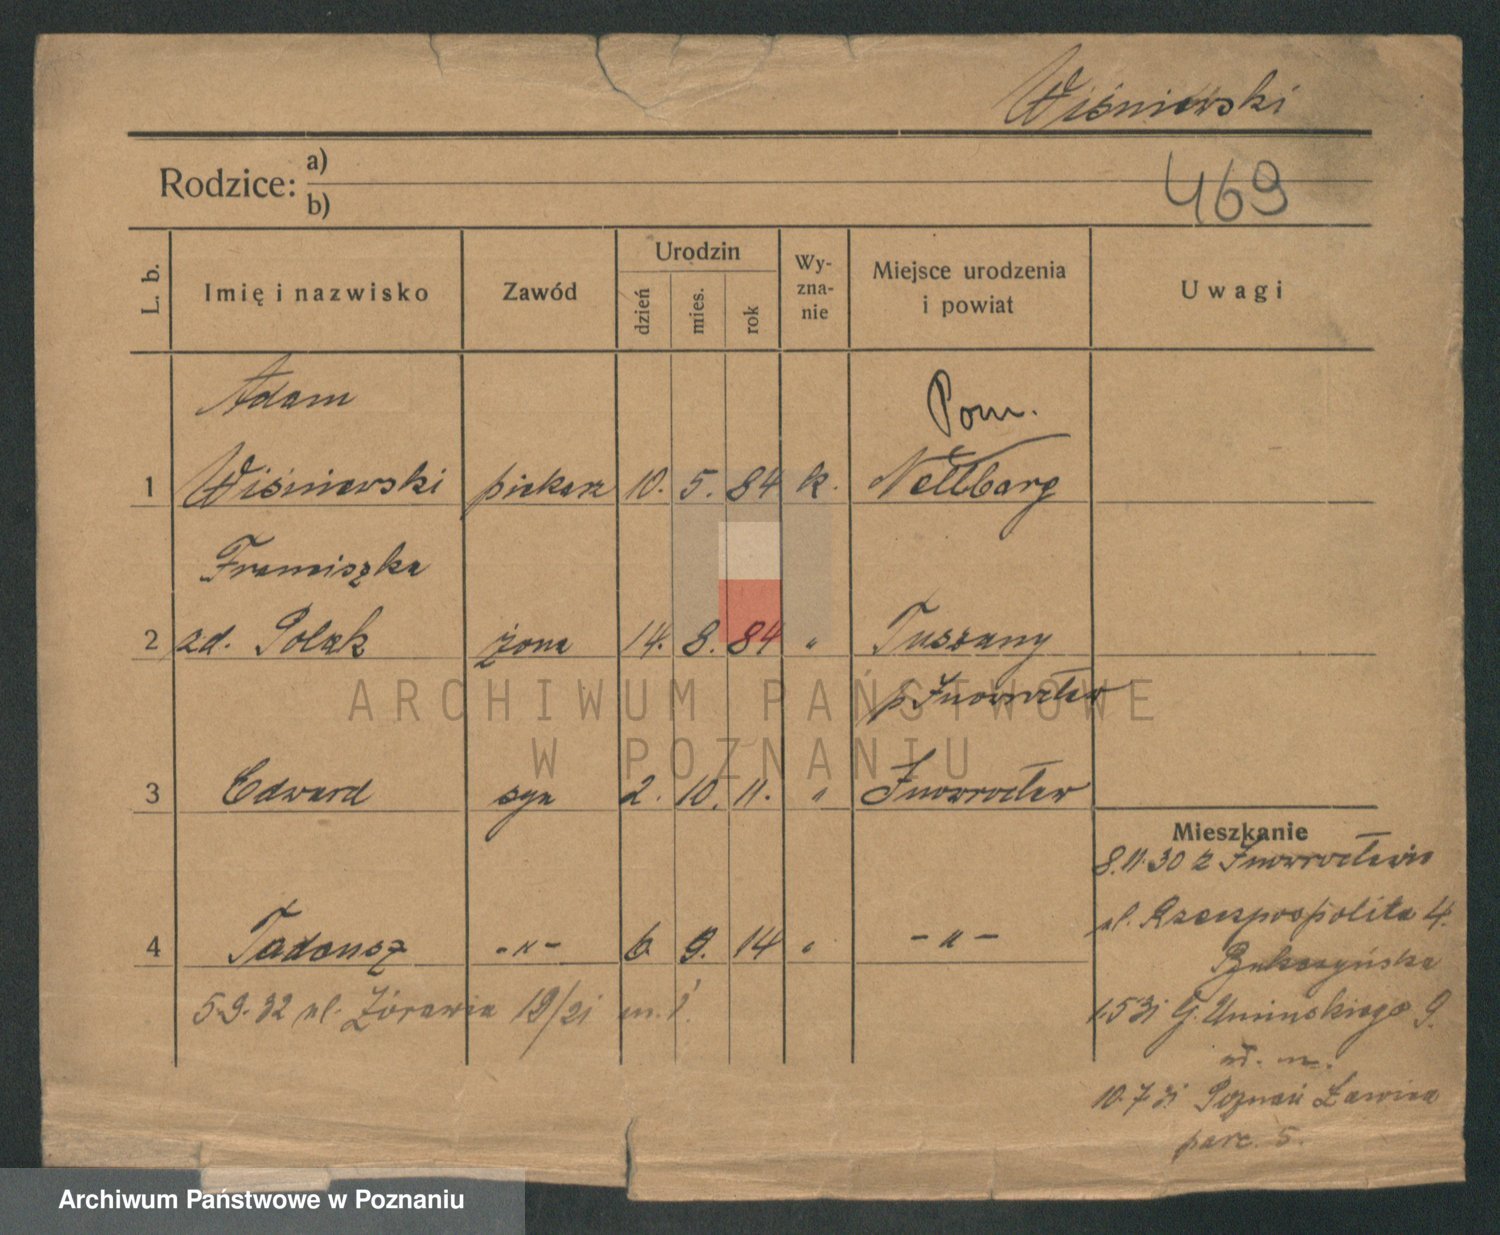 Wiśniewski
Rodzice: a)
b)
469
L. b.
Imię i nazwisko
Zawód
Urodzin
dzień
mies.
rok
Wy-
zna-
nie
Miejsce urodzenia
i powiat
Uwagi
Adam
Pom.
1 Wiśniewski piekarz 10. 5. 84 k.
Franciszka
2 zd. Polak żona 14. 8. 84 " Tuszany
p. Inowrocław
3 Edward syn 2. 10. 11. " Inowrocław
Mieszkanie
8.11.30 z Inowrocławia
4 Tadeusz -"- 6 9. 14 " -"-
ul. Rzeczpospolita 4.
5.9.32 ul. Żórawia 19/21 m. 1
1.5 31 G. Umińskiego 9.
10.7.31 Poznań Ławica
parc. 5.
ARCHIWUM PAŃSTWOWE
W POZNANIU
Archiwum Państwowe w Poznaniu